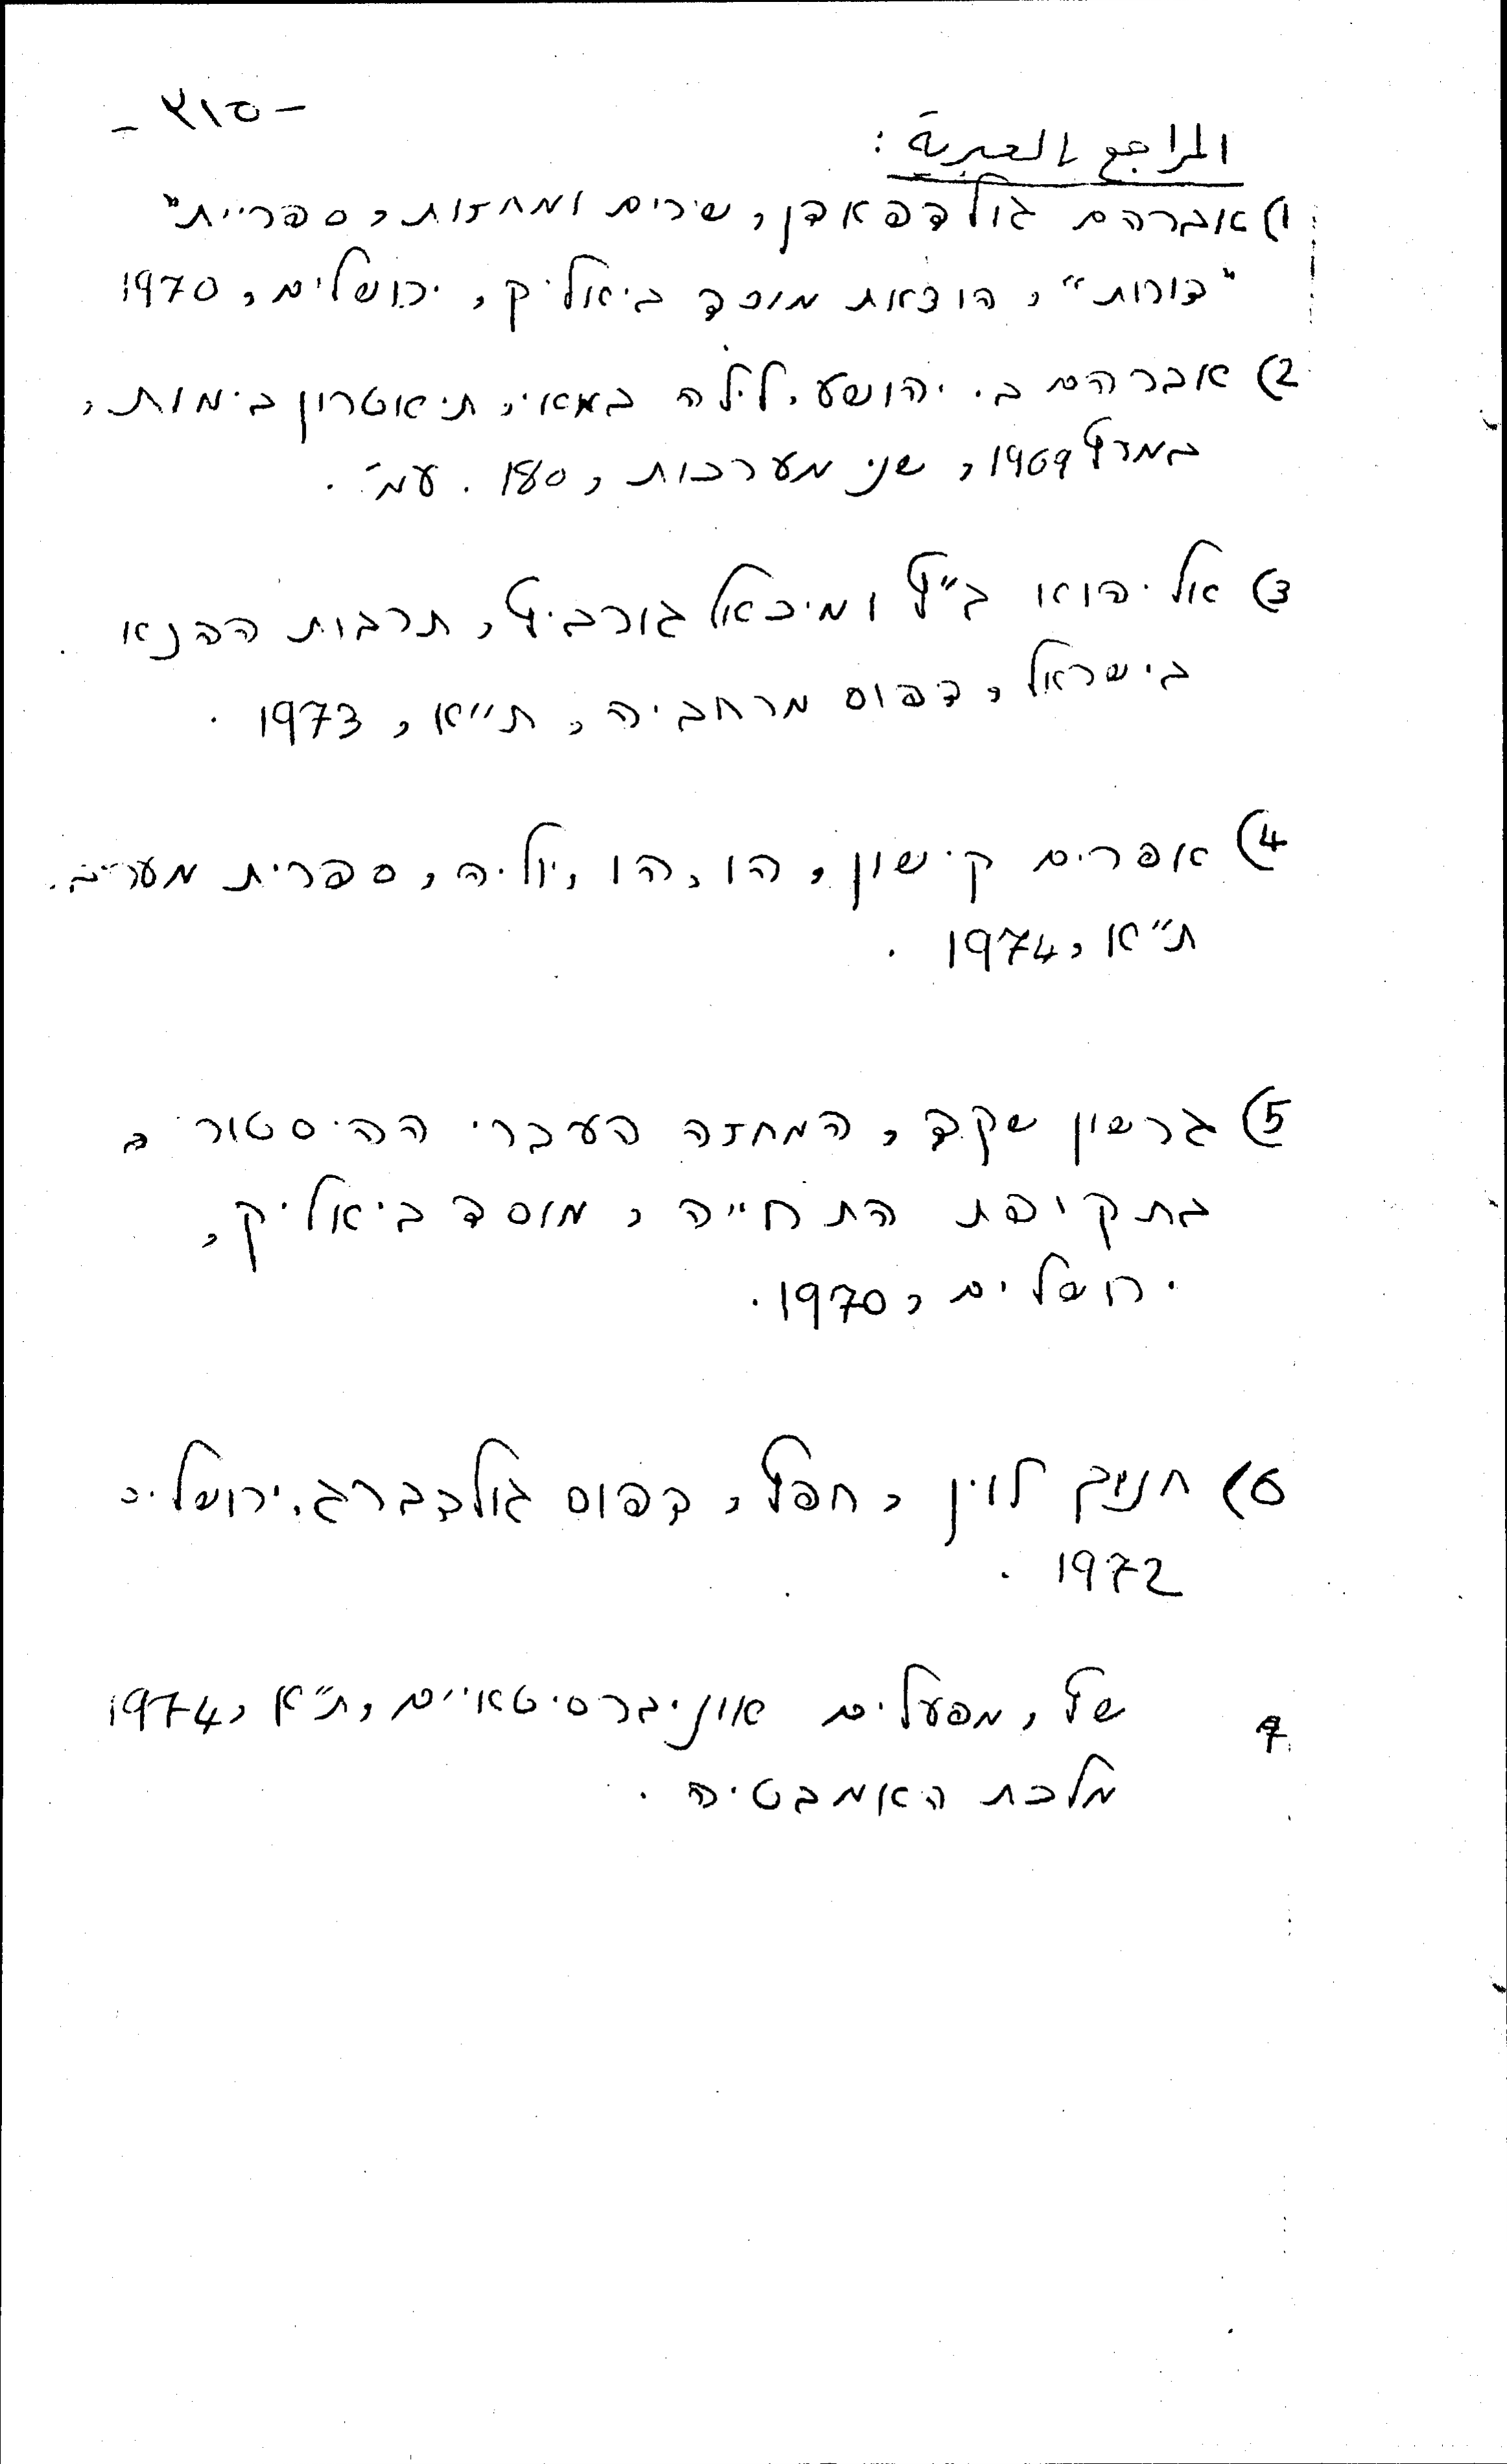 - ٣١٥ -
المراجع العبرية :
1) אברהם גולדפאדן, שירים ומחזות, ספריית"
"דורות", הוצאת מוסד ביאליק, ירושלים, 1970
2) אברהם ב. יהושע, לילה במאי, תיאטרון בימות,
במרץ 1969, שני מערכות, 180 . עמ' .
3) אליהוא ב"ץ ומיכאל גורביץ, תרבות הפנאי
בישראל, דפוס מרחביה, ת"א, 1973 .
4) אפרים קישון, הו, הו, יוליה, ספרית מעריב.
ת"א, 1974 .
5) גרשון שקד, המחזה העברי ההיסטורי ב
בתקופת התחייה, מוסד ביאליק,
ירושלים, 1970.
6) חנוך לוין, חפץ, דפוס גולדברג, ירושלים
1972 .
7 שץ, מפעלים אוניברסיטאיים, ת"א, 1974
מלכת האמבטיה .